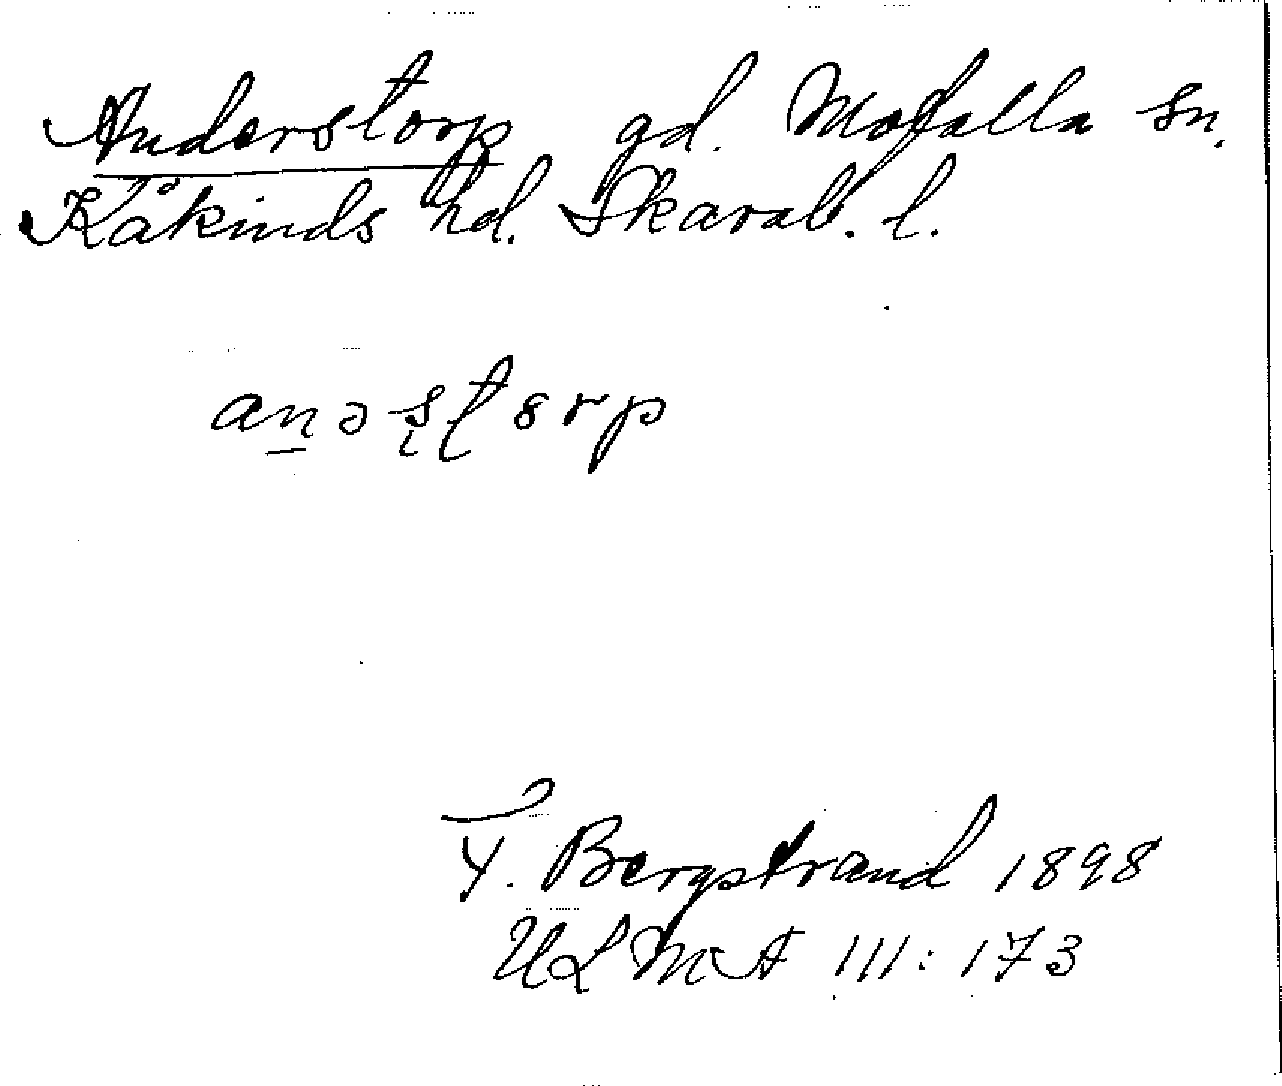 Anderstorp gd. Mofalla sn.
Kåkinds hd. Skarab. l.
anəstorp
F. Bergstrand 1898
ULMA 111:173